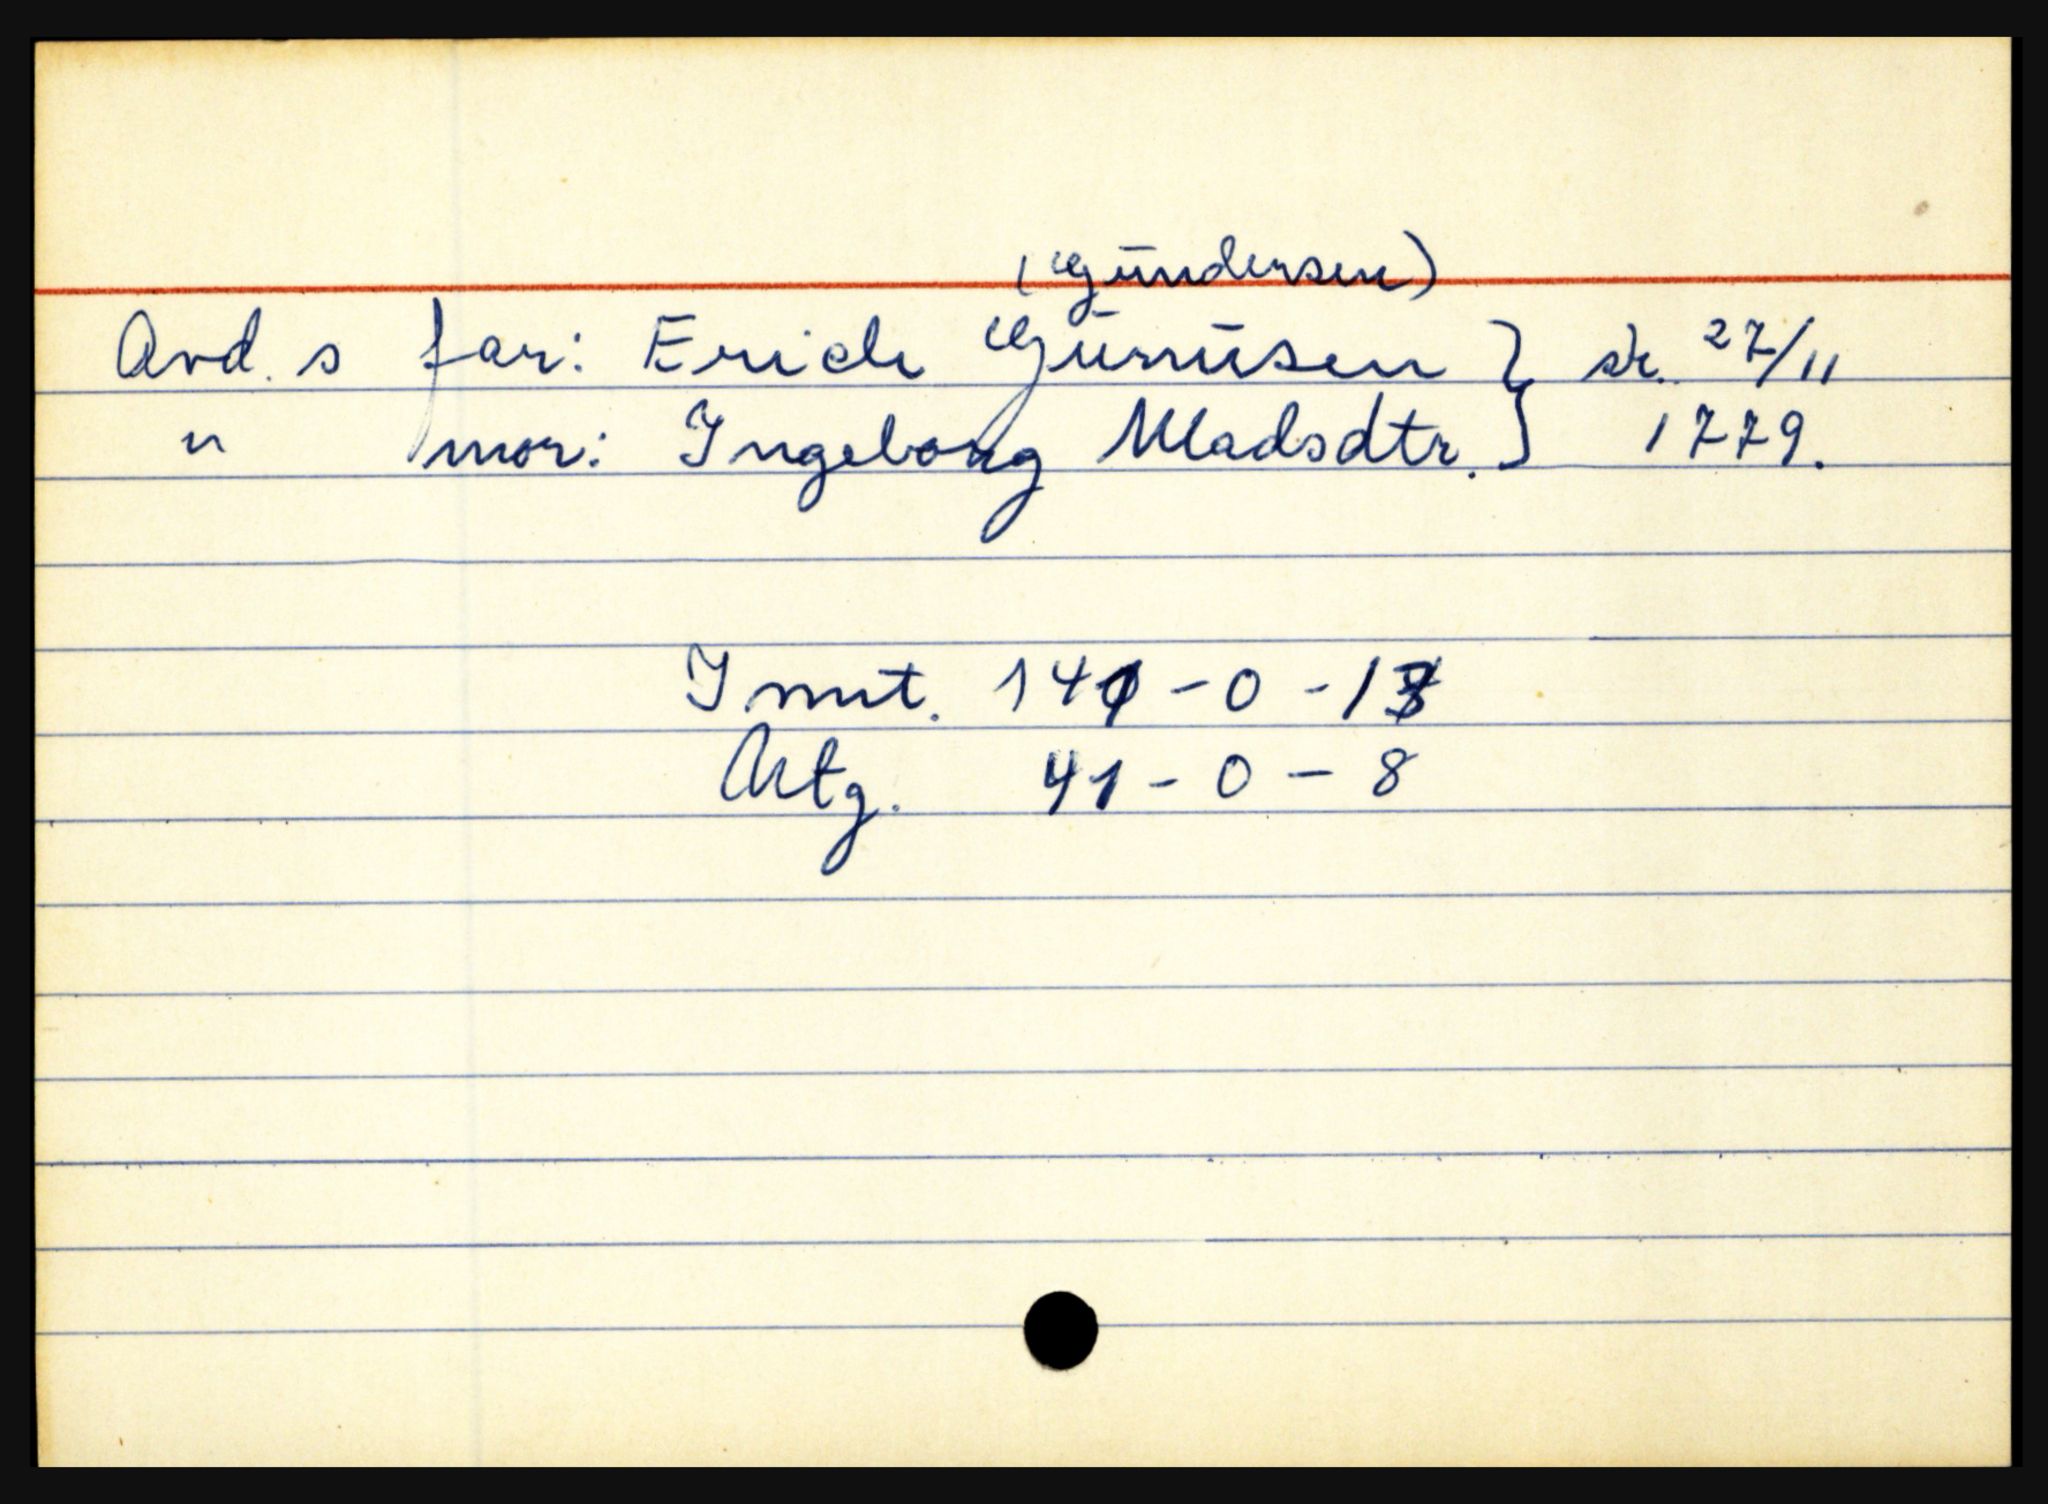 (Gundersen)
Avd. s far: Erich Gunnisen } sk. 27/11
" mor: Ingeborg Madsdtr. } 1779.
Innt. 141-0-13
Utg. 41-0-8